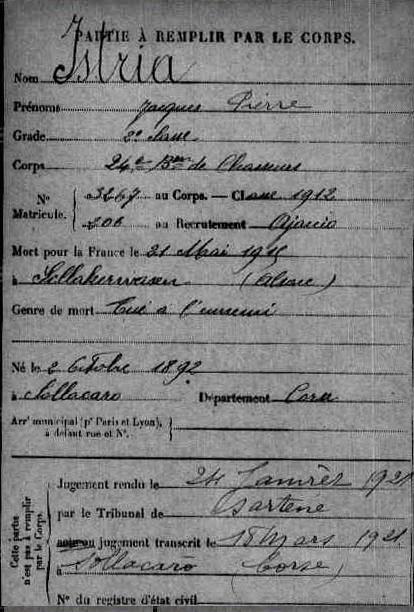 PARTIE À REMPLIR PAR LE CORPS.
Nom Istria
Prénoms Jacques Pierre
Grade 2e classe
Corps 24e Bon de Chasseurs
Nº Matricule. 3267 au Corps. — Classe 1912
206 au Recrutement Ajaccio
Mort pour la France le 21 Mai 1915
à (Alsace)
Genre de mort Tué à l'ennemi
Né le 2 Octobre 1892
à Sollacaro Département Corse
Arrt municipal (pr Paris et Lyon),
à défaut rue et Nº.
Cette partie n'est pas à remplir par le Corps.
Jugement rendu le 24 Janvier 1921
par le Tribunal de Sartene
jugement transcrit le 15 Mars 1921
à Sollacaro (Corse)
Nº du registre d'état civil